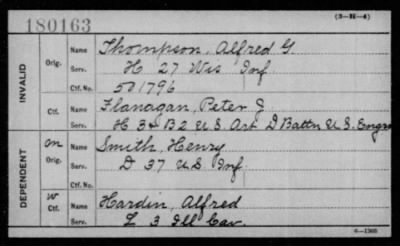 180163
(3-H-4)
INVALID
Orig.
Name Thompson, Alfred G.
Serv. H 27 Wis Inf
Ctf. No. 501796
Ctf.
Name Flanagan, Peter J.
Serv. H 3 & B 2 U S. Art D Battn U S. Engrs
DEPENDENT
on
Orig.
Name Smith, Henry
Serv. D 37 U S Inf
Ctf. No.
W
Ctf.
Name Hardin, Alfred
Serv. L 3 Ill Cav.
6-1388